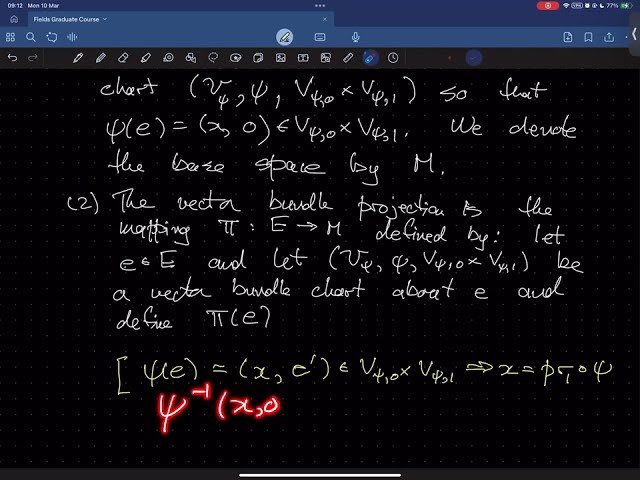 09:12 Mon 10 Mar
77%
Fields Graduate Course
chart (𝒱_ψ, ψ, V_ψ,0 × V_ψ,1) so that
ψ(e) = (x, 0) ∈ V_ψ,0 × V_ψ,1. We denote
the base space by M.
(2) The vector bundle projection is the
mapping π : E → M defined by: let
e ∈ E and let (𝒱_ψ, ψ, V_ψ,0 × V_ψ,1) be
a vector bundle chart about e and
define π(e)
[ ψ(e) = (x, e') ∈ V_ψ,0 × V_ψ,1 ⟹ x = pr₁ ∘ ψ
ψ⁻¹(x,0